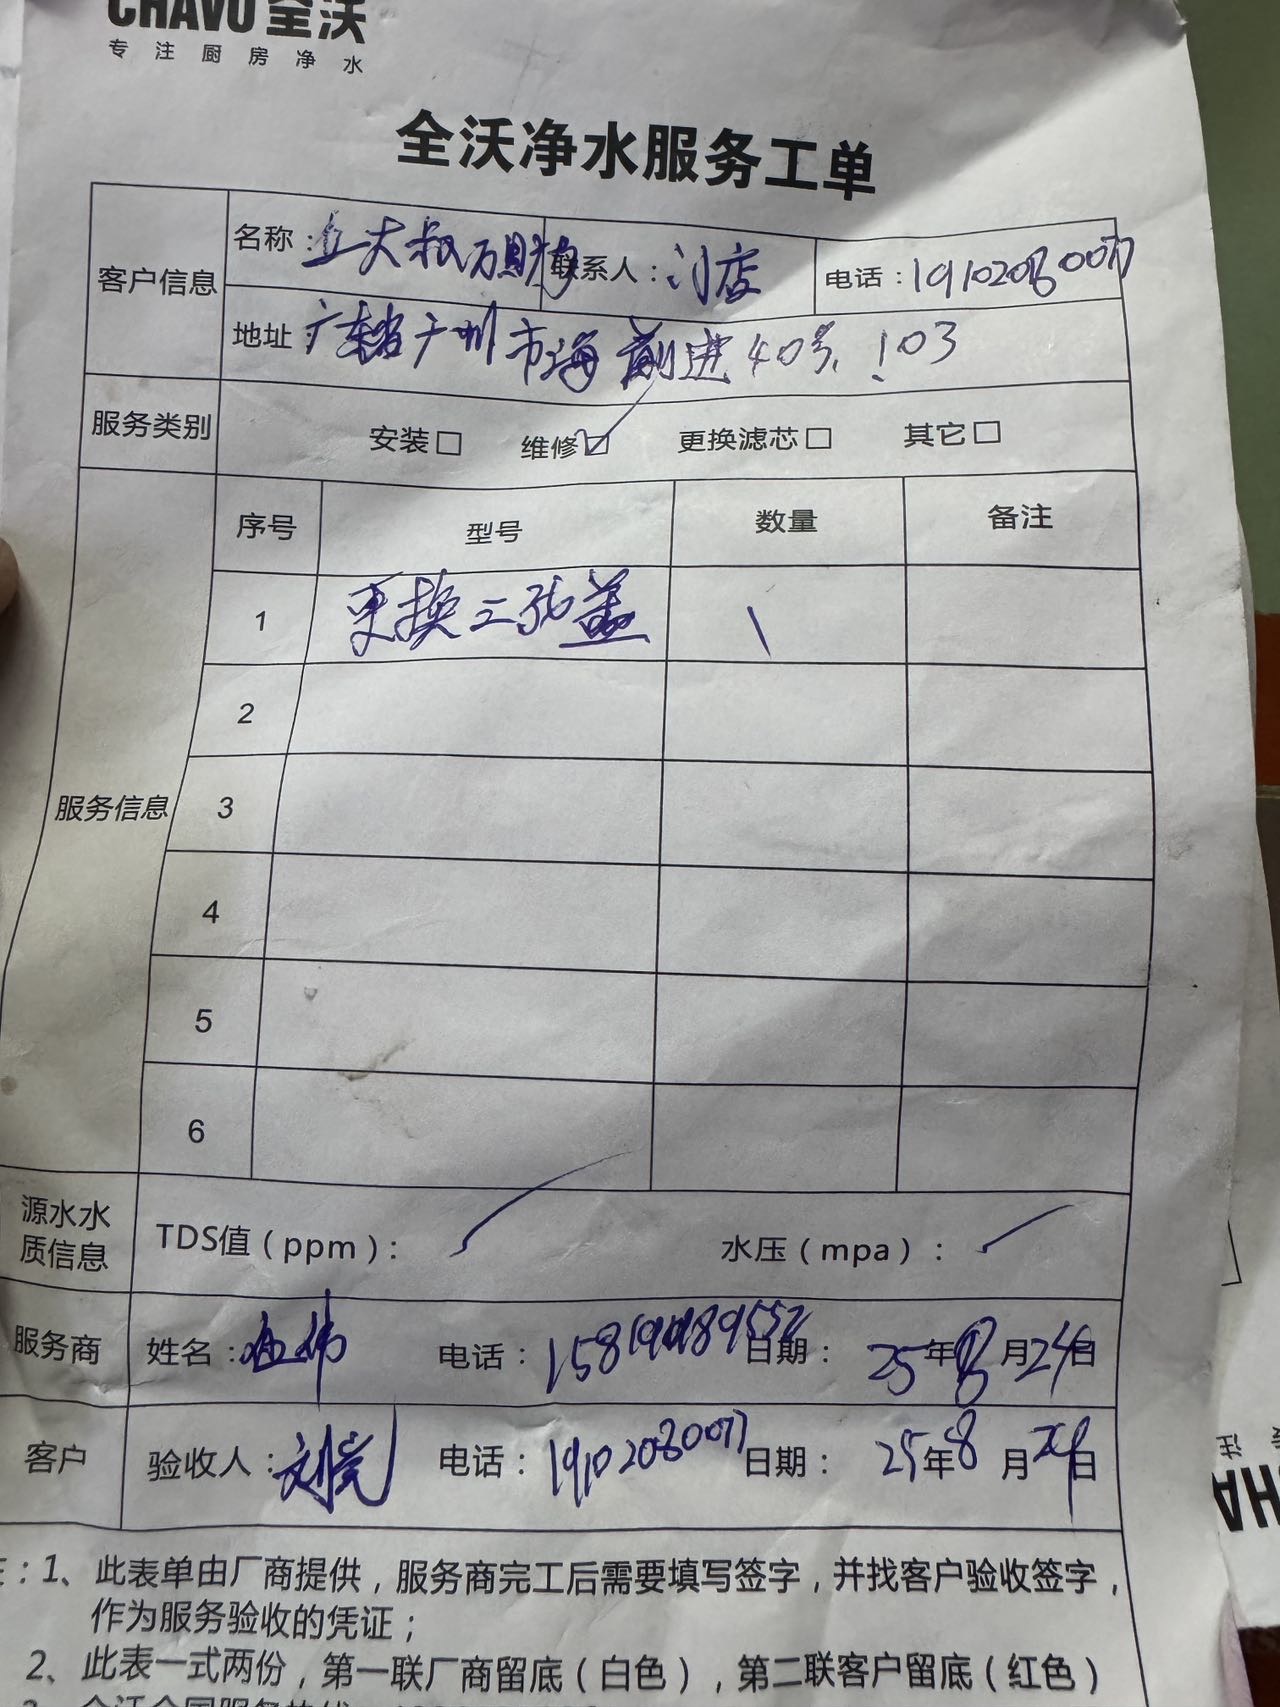 CHAVO 全沃
专注厨房净水
全沃净水服务工单
客户信息
名称：丘大叔万 联系人：门店 电话：19102080077
地址 广东省广州市海 前进40号，103
服务类别 安装☐ 维修☑ 更换滤芯☐ 其它☐
服务信息
序号 型号 数量 备注
1 更换三 盖 1
2
3
4
5
6
源水水质信息
TDS值（ppm）： 水压（mpa）：
服务商 姓名： 伟 电话： 日期：25年8月24日
客户 验收人：刘 电话：19102080077 日期：25年8月24日
注：1、此表单由厂商提供，服务商完工后需要填写签字，并找客户验收签字，
作为服务验收的凭证；
2、此表一式两份，第一联厂商留底（白色），第二联客户留底（红色）